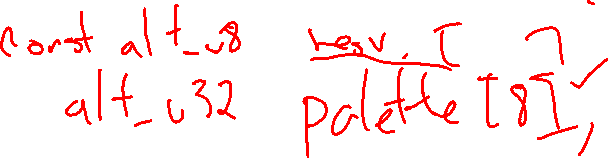 const alt_u8 resv. [ ]
alt_u32 palette [8];